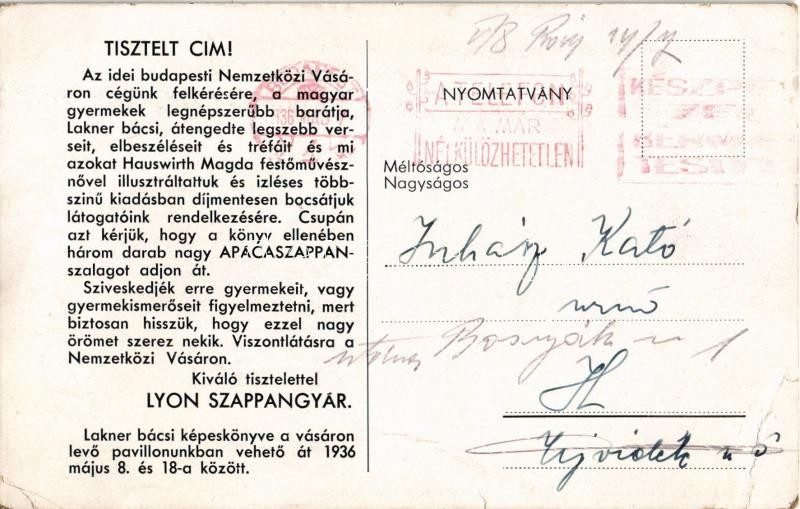 TISZTELT CIM!
Az idei budapesti Nemzetközi Vásá-
ron cégünk felkérésére, a magyar
gyermekek legnépszerűbb barátja,
Lakner bácsi, átengedte legszebb ver-
seit, elbeszéléseit és tréfáit és mi
azokat Hauswirth Magda festőművész-
nővel illusztráltattuk és izléses több-
szinű kiadásban díjmentesen bocsátjuk
látogatóink rendelkezésére. Csupán
azt kérjük, hogy a könyv ellenében
három darab nagy APÁCASZAPPAN-
szalagot adjon át.
Sziveskedjék erre gyermekeit, vagy
gyermekismerőseit figyelmeztetni, mert
biztosan hisszük, hogy ezzel nagy
örömet szerez nekik. Viszontlátásra a
Nemzetközi Vásáron.
Kiváló tisztelettel
LYON SZAPPANGYÁR.
Lakner bácsi képeskönyve a vásáron
levő pavillonunkban vehető át 1936
május 8. és 18-a között.
NYOMTATVÁNY
A TELEFON
MA MÁR
NÉLKÜLÖZHETETLEN
Méltóságos
Nagyságos
Juhász Kató
urnő
Bosnyák u 1
Ujvidék u 5